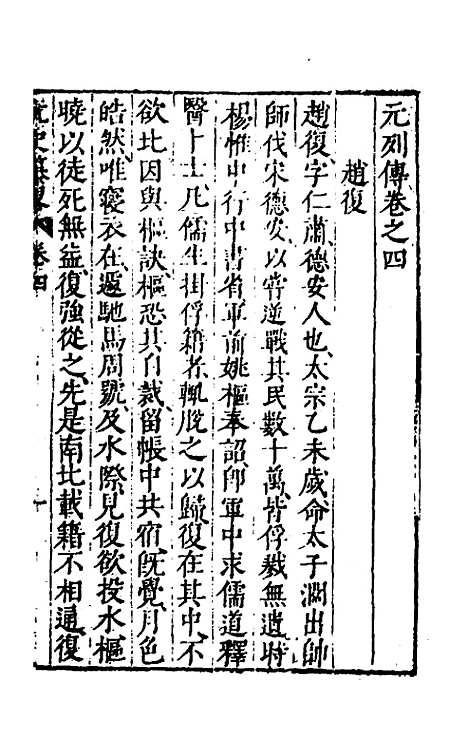 元列傳卷之四
趙復
趙復字仁肅德安人也太宗乙未歲命太子濶出帥
師伐宋德安以嘗逆戰其民數十萬皆俘戮無遺時
楊惟中行中書省軍前姚樞奉詔即軍中求儒道釋
醫卜士凡儒生掛俘籍者輒脫之以歸復在其中不
欲北因與樞訣樞恐其自裁留帳中共宿旣覺月色
皓然唯寢衣在遽馳馬周號及水際見復欲投水樞
曉以徒死無益復強從之先是南北載籍不相通復
卷四